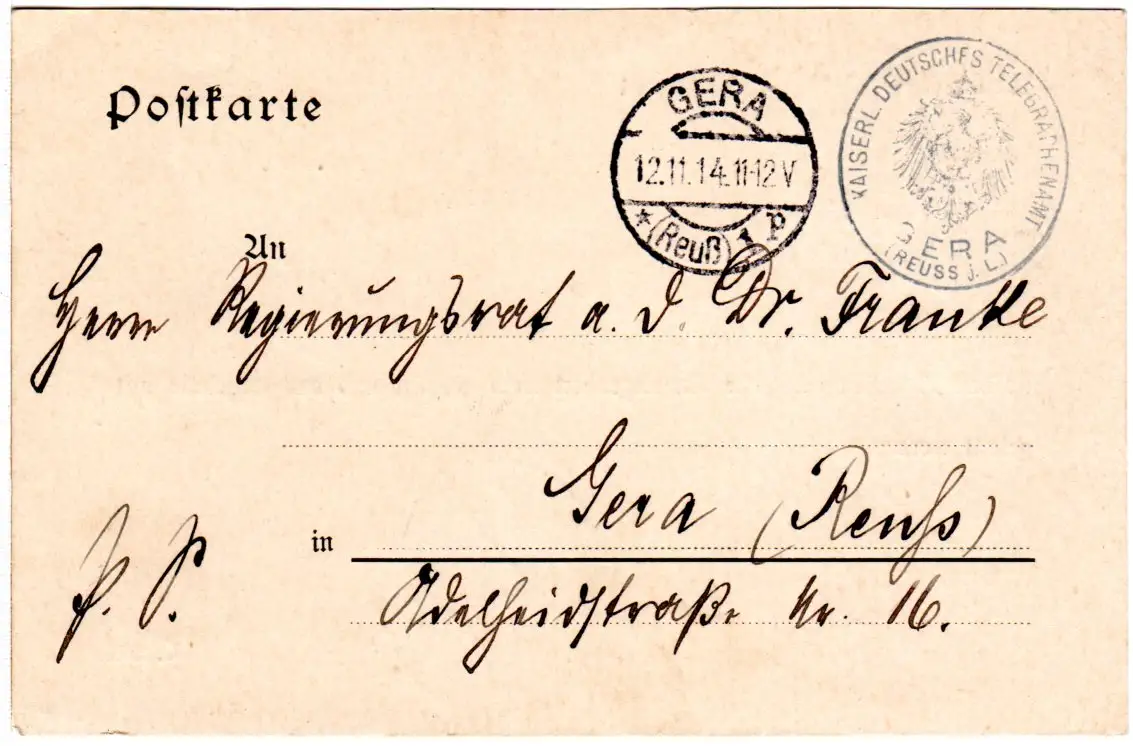 Postkarte
GERA
12.11.14.11-12V
* (Reuß) 1 p
KAISERL. DEUTSCHES TELEGRAPHENAMT
GERA
(REUSS j. L.)
An
Herrn Regierungsrat a. d. Dr. Franke
Gera (Reuß)
in
Adelheidstraße Nr. 16.